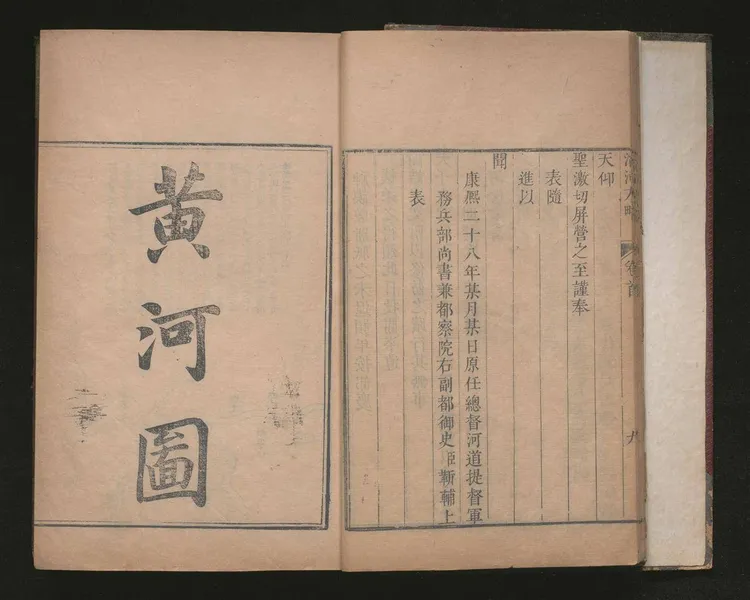 治河方略 卷首
九
天仰
聖激切屏營之至謹奉
表隨
進以
聞
康熙二十八年某月某日原任總督河道提督軍
務兵部尚書兼都察院右副都御史臣靳輔上
表
黃河圖